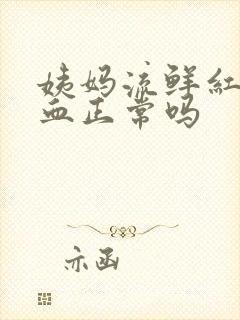 姨妈流鲜红
血正常吗
亦函